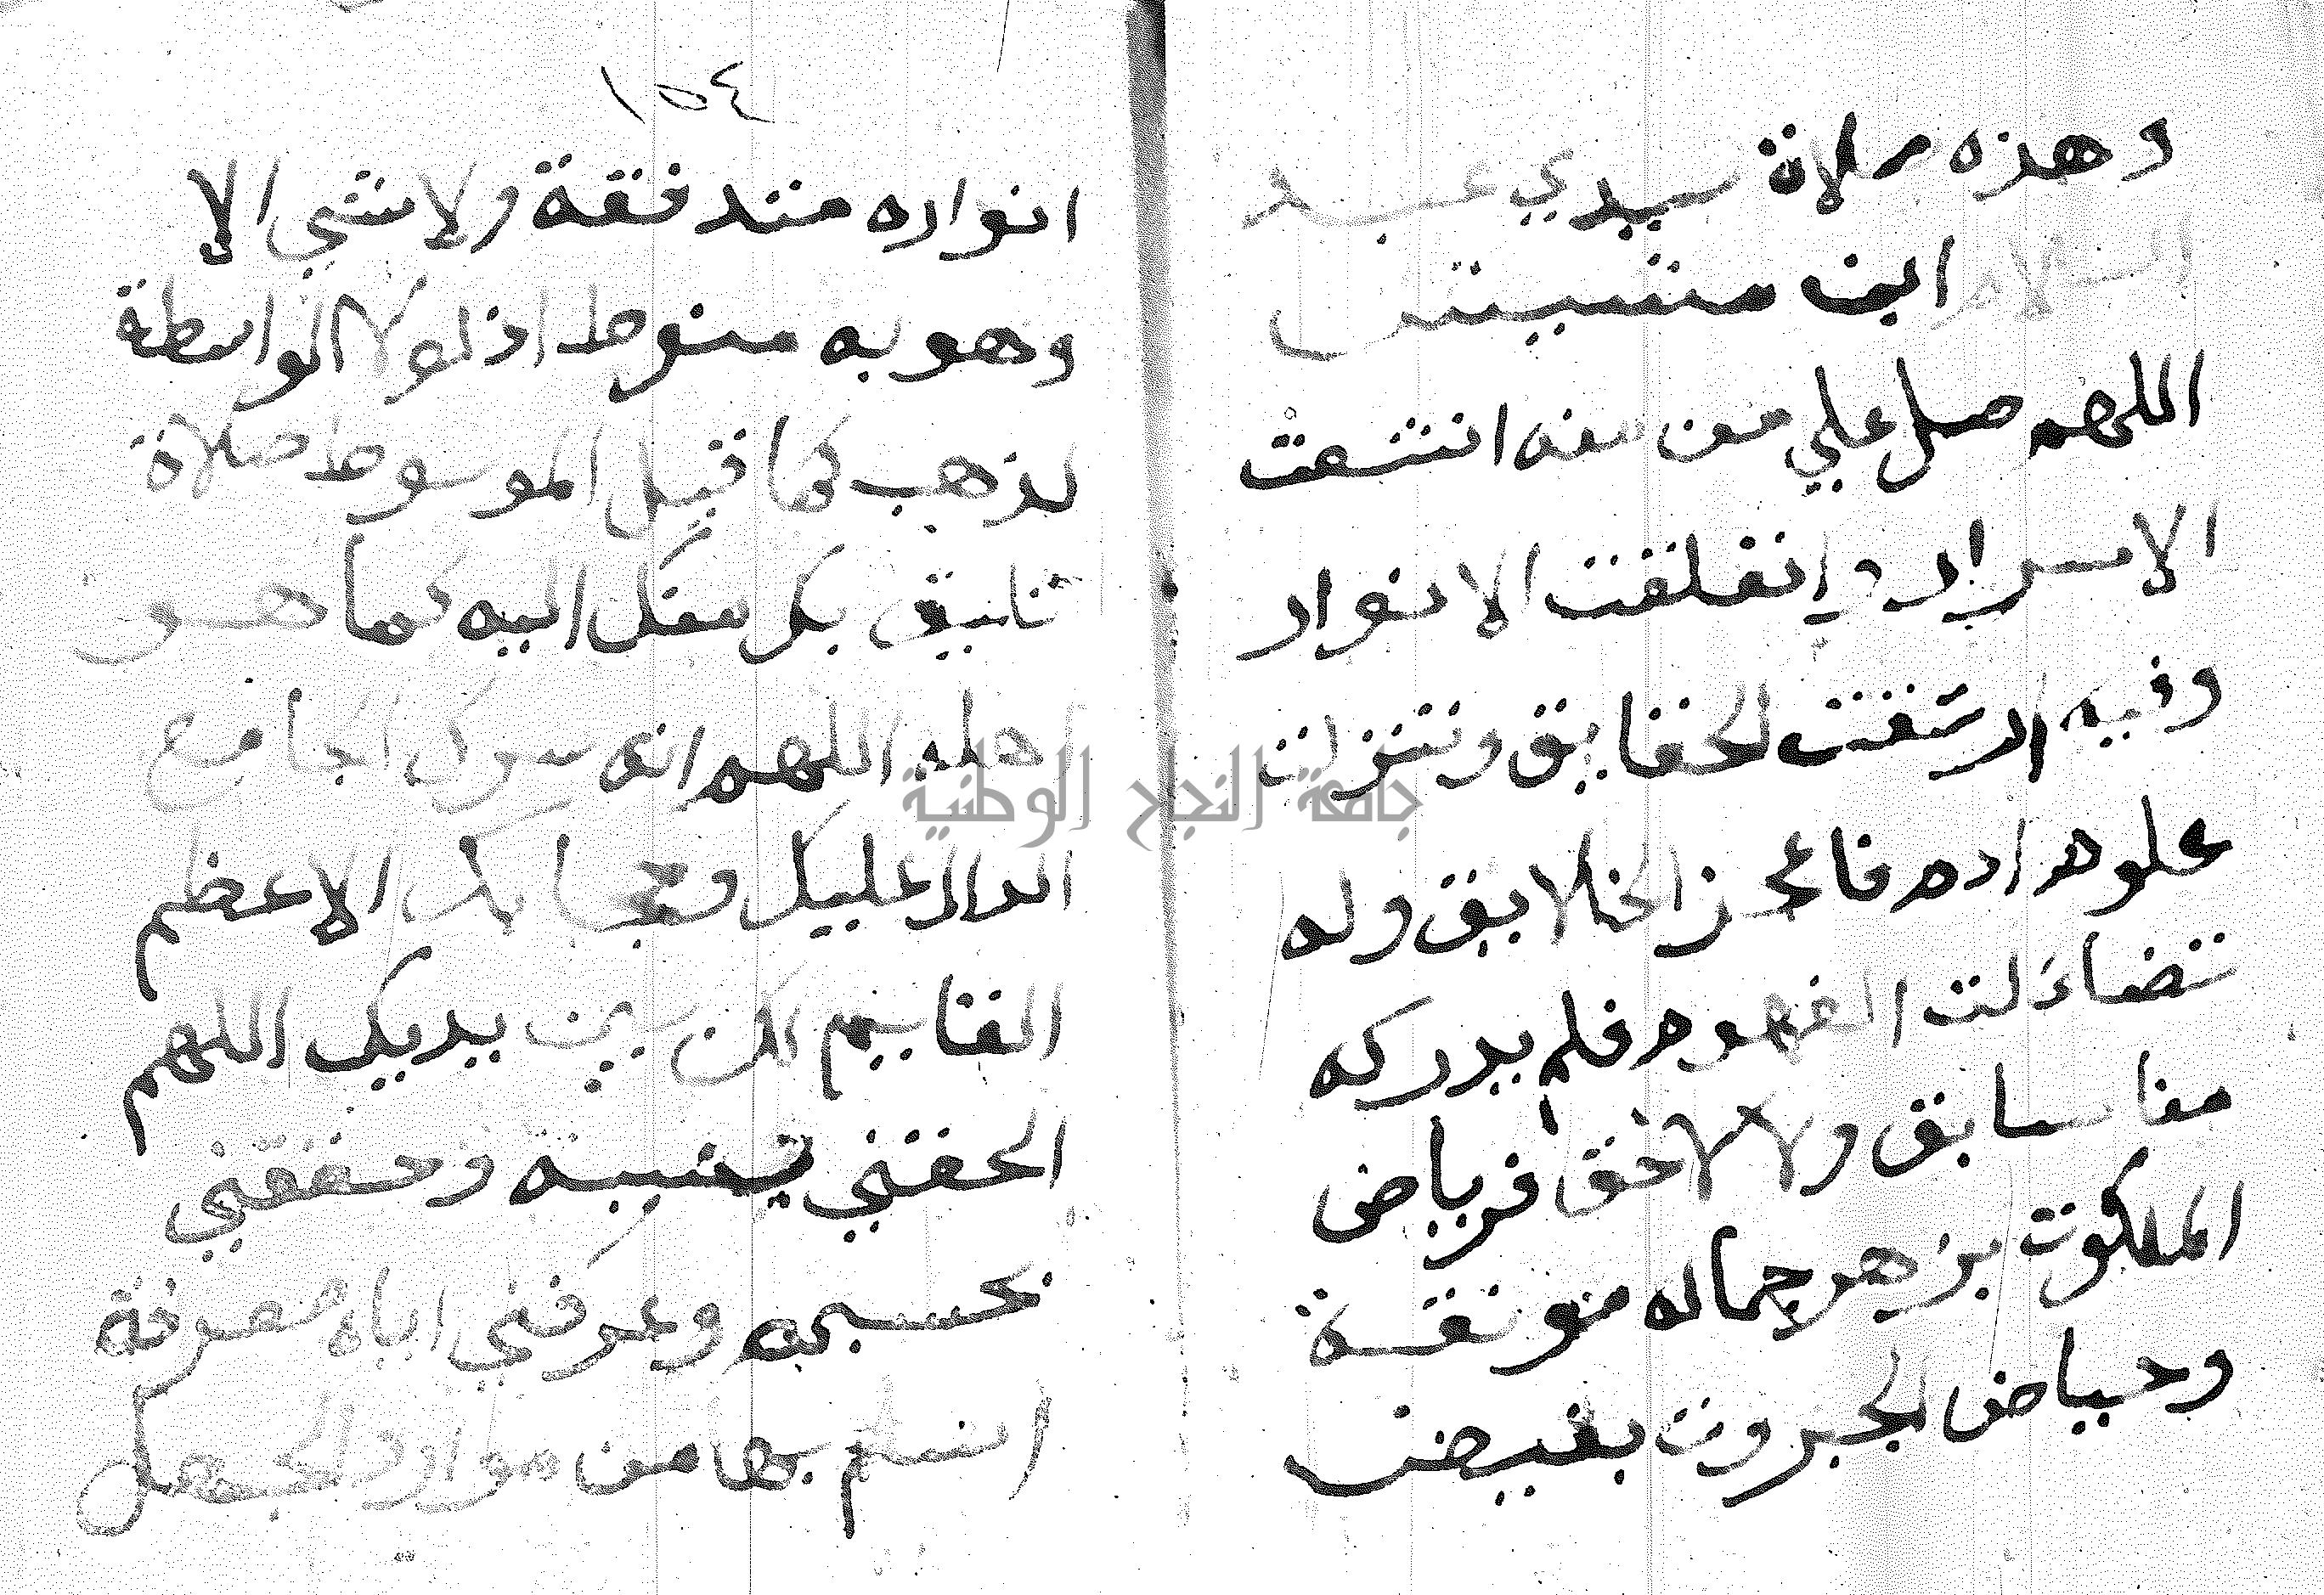 وهذه صلاة سيدي عبد
السلام ابن مشيش
اللهم صل علي من منه انشقت
الاسرار وانفلقت الانوار
وفيه ارتقت الحقايق وتنزلت
علوم ادم فاعجز الخلايق وله
تضاءلت الفهوم فلم يدركه
منا سابق ولا لاحق فرياض
الملكوت بزهر جماله مونقة
وحياض الجبروت بفيض
١٥٤
انواره متدفقة ولا شي الا
وهو به منوط اذ لولا الواسطة
لذهب كما قيل الموسوط صلاة
تليق بك منك اليه كما هو
اهله اللهم انه سرك الجامع
الدال عليك وحجابك الاعظم
القايم لك بين يديك اللهم
الحقني بنسبه وحققني
بحسبه وعرفني اياه معرفة
اسلم بها من موارد الجهل
جامعة النجاح الوطنية